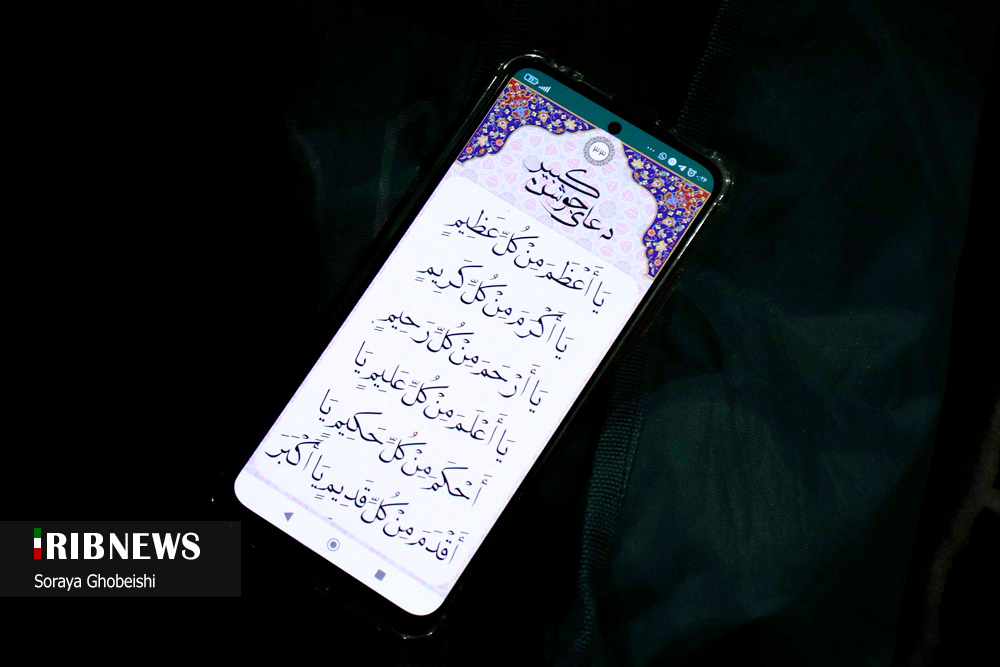 ۳۳
دعای جوشن
کبیر
یَا أَعْظَمَ مِنْ كُلِّ عَظِیمٍ
یَا أَكْرَمَ مِنْ كُلِّ كَرِیمٍ
یَا أَرْحَمَ مِنْ كُلِّ رَحِیمٍ
یَا أَعْلَمَ مِنْ كُلِّ عَلِیمٍ یَا
أَحْكَمَ مِنْ كُلِّ حَكِیمٍ یَا
أَقْدَمَ مِنْ كُلِّ قَدِیمٍ یَا أَكْبَرَ
IRIBNEWS
Soraya Ghobeishi